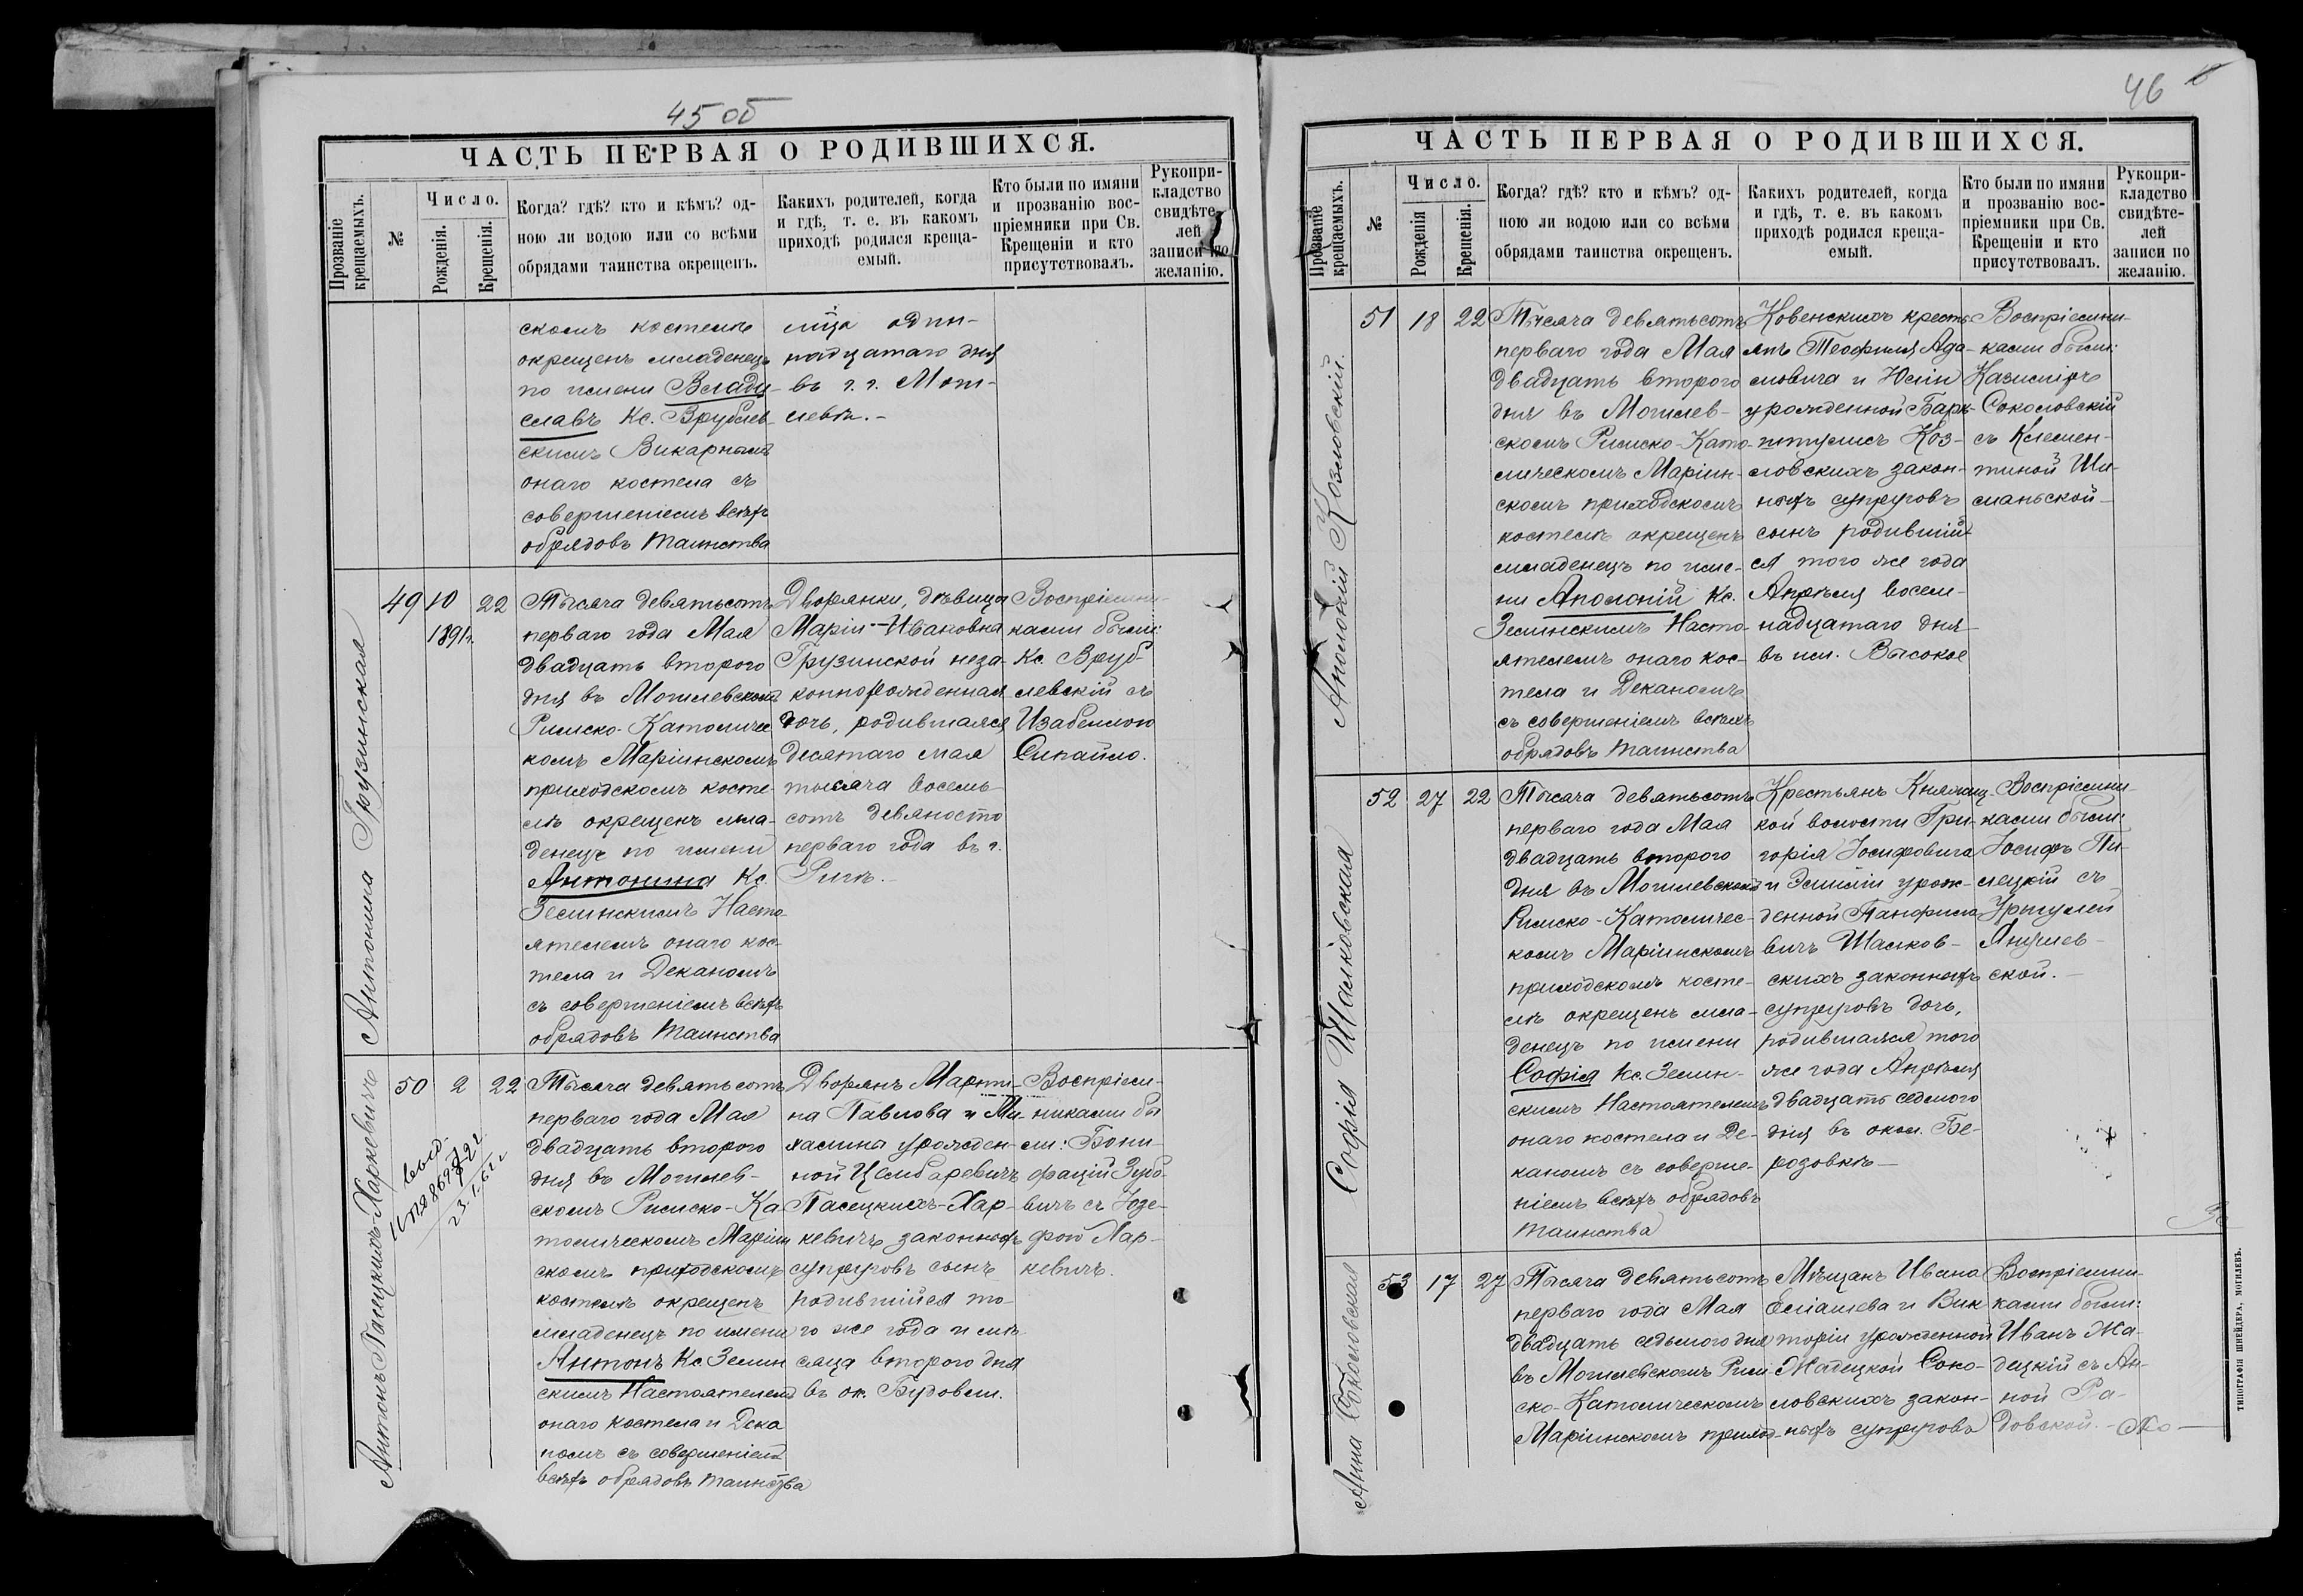 45 об
ЧАСТЬ ПЕРВАЯ О РОДИВШИХСЯ.
Прозваніе крещаемыхъ.
№
Число.
Рожденія.
Крещенія.
Когда? гдѣ? кто и кѣмъ? од-
ною ли водою или со всѣми
обрядами таинства окрещенъ.
Какихъ родителей, когда
и гдѣ, т. е. въ какомъ
приходѣ родился креща-
емый.
Кто были по имяни
и прозванію вос-
пріемники при Св.
Крещеніи и кто
присутствовалъ.
Рукопри-
кладство
свидѣте-
лей
записи по
желанію.
скомъ костелѣ
окрещенъ младенецъ
по имени Влади-
славъ Кс. Врублев-
скимъ Викарнымъ
онаго костела съ
совершеніемъ всѣхъ
обрядовъ таинства
мѣсяца один-
надцатаго дня
въ г. г. Моги-
левѣ.-
Антонина Грузинская
49 10 22
1891г.
Тысяча девятьсотъ
перваго года Мая
двадцать второго
дня въ Могилевскомъ
Римско-Католичес
комъ Маріинскомъ
приходскомъ косте-
лѣ окрещенъ мла-
денецъ по имени
Антонина Кс.
Зелинскимъ Насто-
ятелемъ онаго кос-
тела и Деканомъ
съ совершеніемъ всѣхъ
обрядовъ таинства
Дворянки, дѣвицы
Маріи Ивановна
Грузинской неза-
коннорожденная
дочь, родившаяся
десятаго мая
тысяча восемь-
сотъ девяносто
перваго года въ г.
Ригѣ.
Воспріемни-
ками были:
Кс. Вруб-
левскій съ
Изабеллою
Сипайло.
Антонъ Пасецкихъ-Харкевичъ
50 2 22
выд.
23.1.61г
Тысяча девятьсотъ
перваго года Мая
двадцать второго
дня въ Могилев-
скомъ Римско-Ка-
толическомъ Маріин
скомъ приходскомъ
костелѣ окрещенъ
младенецъ по имени
Антонъ Кс Зелин
скимъ Настоятелемъ
онаго костела и Дека
номъ съ совершеніемъ
всѣхъ обрядовъ таинства
Дворянъ Марти-
на Павлова и Ми-
халины урожден-
ной Цимбаревичъ
Пасецкихъ-Хар-
кевичъ законныхъ
супруговъ сынъ
родившійся то-
го же года и мѣ-
сяца второго дня
въ ок. Будовли.
Воспріем-
никами бы
ли: Бони-
фацій Зубо-
вичъ съ Юзе-
фой Хар-
кевичъ.
46
ЧАСТЬ ПЕРВАЯ О РОДИВШИХСЯ.
Прозваніе крещаемыхъ.
№
Число.
Рожденія
Крещенія.
Когда? гдѣ? кто и кѣмъ? од-
ною ли водою или со всѣми
обрядами таинства окрещенъ.
Какихъ родителей, когда
и гдѣ, т. е. въ какомъ
приходѣ родился креща-
емый.
Кто были по имяни
и прозванію вос-
пріемники при Св.
Крещеніи и кто
присутствовалъ.
Рукопри-
кладство
свидѣте-
лей
записи по
желанію.
Аполоній Козловскій.
51 18 22
Тысяча девятьсотъ
перваго года Мая
двадцать второго
дня въ Могилев-
скомъ Римско-Като-
лическомъ Маріин-
скомъ приходскомъ
костелѣ окрещенъ
младенецъ по име-
ни Аполоній Кс.
Зелинскимъ Насто-
ятелемъ онаго кос-
тела и Деканомъ
съ совершеніемъ всѣхъ
обрядовъ таинства
Ковенскихъ кресть-
янъ Теофиля Ада-
мовича и Юліи
урожденной Барк-
Коз-
ловскихъ закон-
ныхъ супруговъ
сынъ родившій-
ся того же года
Апрѣля восем-
надцатаго дня
въ им. Высокое
Воспріемни-
ками были:
Казиміръ
Соколовскій
съ Клемен-
тиной Ши-
маньской
Софія Шалковская
52 27 22
Тысяча девятьсотъ
перваго года Мая
двадцать второго
дня въ Могилевскомъ
Римско-Католичес-
комъ Маріинскомъ
приходскомъ косте-
лѣ окрещенъ мла-
денецъ по имени
Софія Кс. Зелин-
скимъ Настоятелемъ
онаго костела и Де-
каномъ съ соверше-
ніемъ всѣхъ обрядовъ
таинства
Крестьянъ Княжиц-
кой волости Гри-
горія Іосифовича
и Эмиліи урож-
денной Панфило-
вичъ Шалков-
скихъ законныхъ
супруговъ дочь,
родившаяся того
же года Апрѣля
двадцать седмого
дня въ окол. Бе-
родовкѣ
Воспріемни-
ками были:
Іосифъ Пи-
лецкій съ
Уршулей
Янушев-
ской.
Анна Соколовская
53 17 27
Тысяча девятьсотъ
перваго года Мая
двадцать седьмого дня
въ Могилевскомъ Рим-
ско-Католическомъ
Маріинскомъ приход-
Мѣщанъ Ивана
Еліашева и Вик
торіи урожденной
Жадецкой Соко-
ловскихъ закон-
ныхъ супруговъ
Воспріемни-
ками были:
Иванъ Жа-
децкій съ Ан-
ной Ра-
довской.
ТИПОГРАФІЯ ШНЕЙДЕРА, МОГИЛЕВЪ.